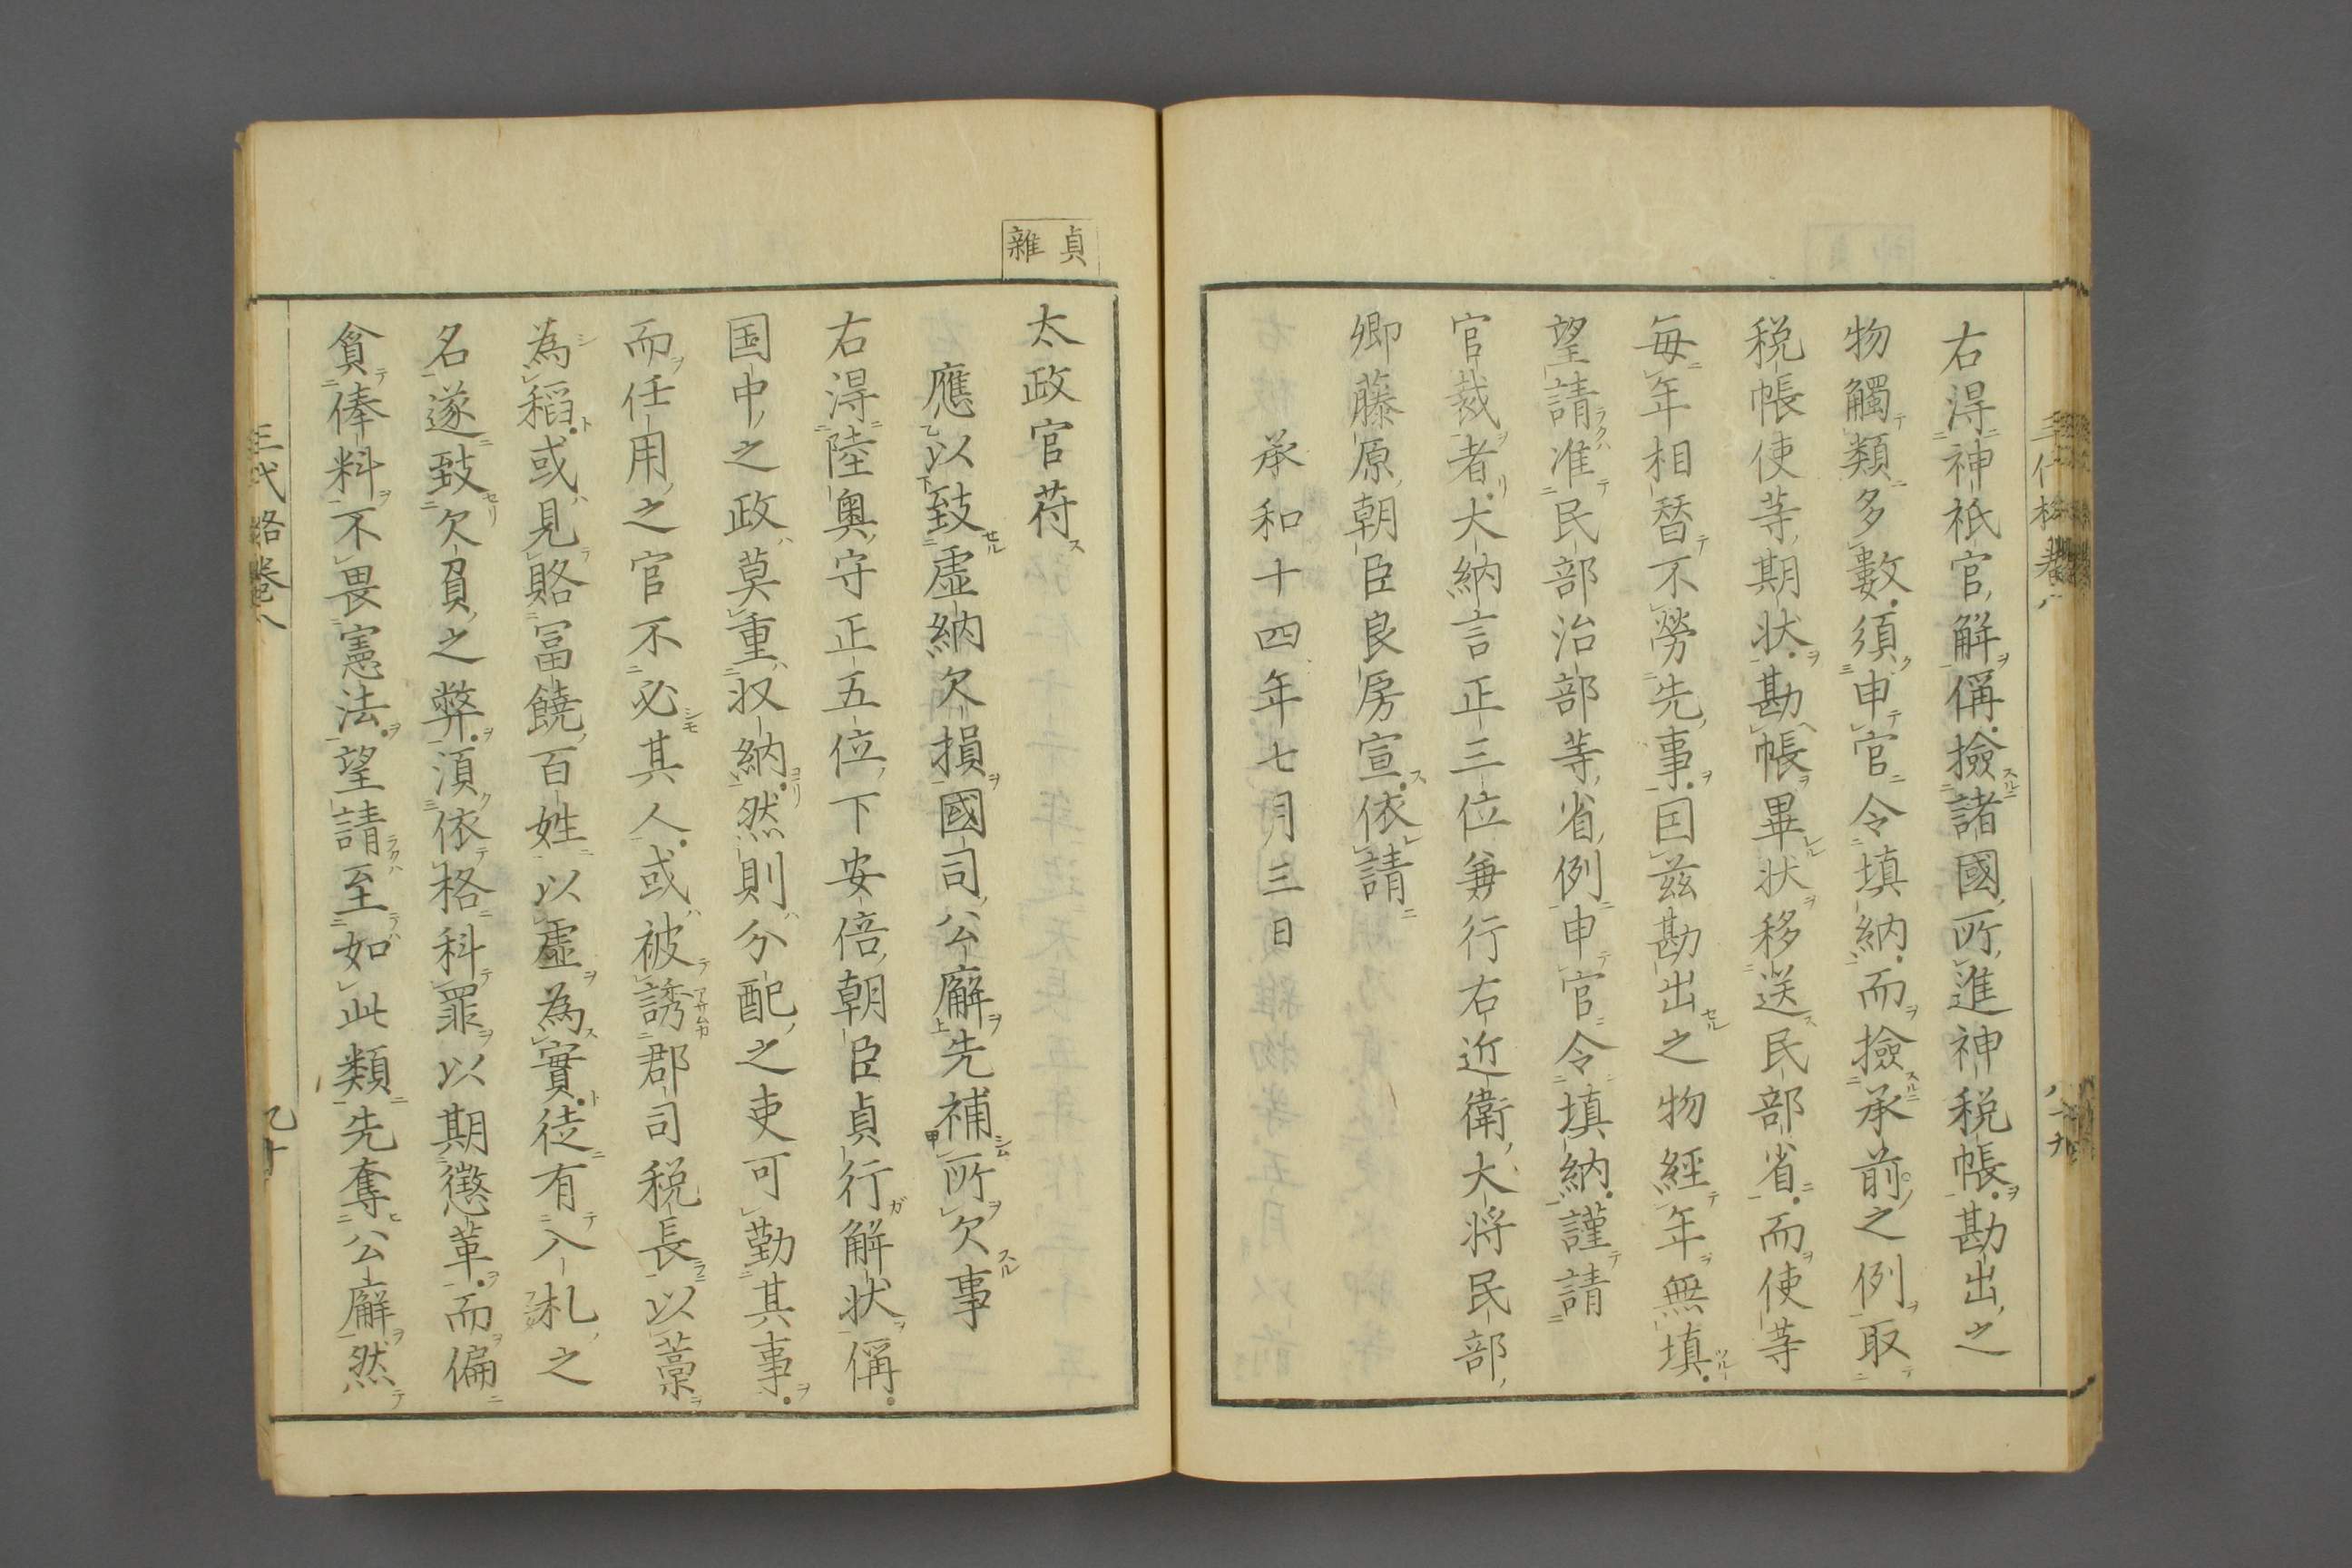 右淂神祇官解偁撿諸國所進神税帳勘出之
物觸類多數須申官令填納而撿承前之例取
税帳使等期状勘帳畢状移送民部省而使等
毎年相替不勞先事因茲勘出之物經年無填
望請准民部治部等省例申官令填納謹請
官裁者大納言正三位兼行右近衛大将民部
卿藤原朝臣良房宣依請
承和十四年七月三日
貞雜
太政官苻
應以致虚納欠損國司公廨先補所欠事
右淂陸奥守正五位下安倍朝臣貞行解状偁
国中之政莫重収納然則分配之吏可勤其事
而任用之官不必其人或被誘郡司税長以藁
為稻或見賂冨饒百姓以虚為實徒有入札之
名遂致欠負之弊湏依格科罪以期懲革而偏
貪俸料不畏憲法望請至如此類先奪公廨然
三代格卷八
九十